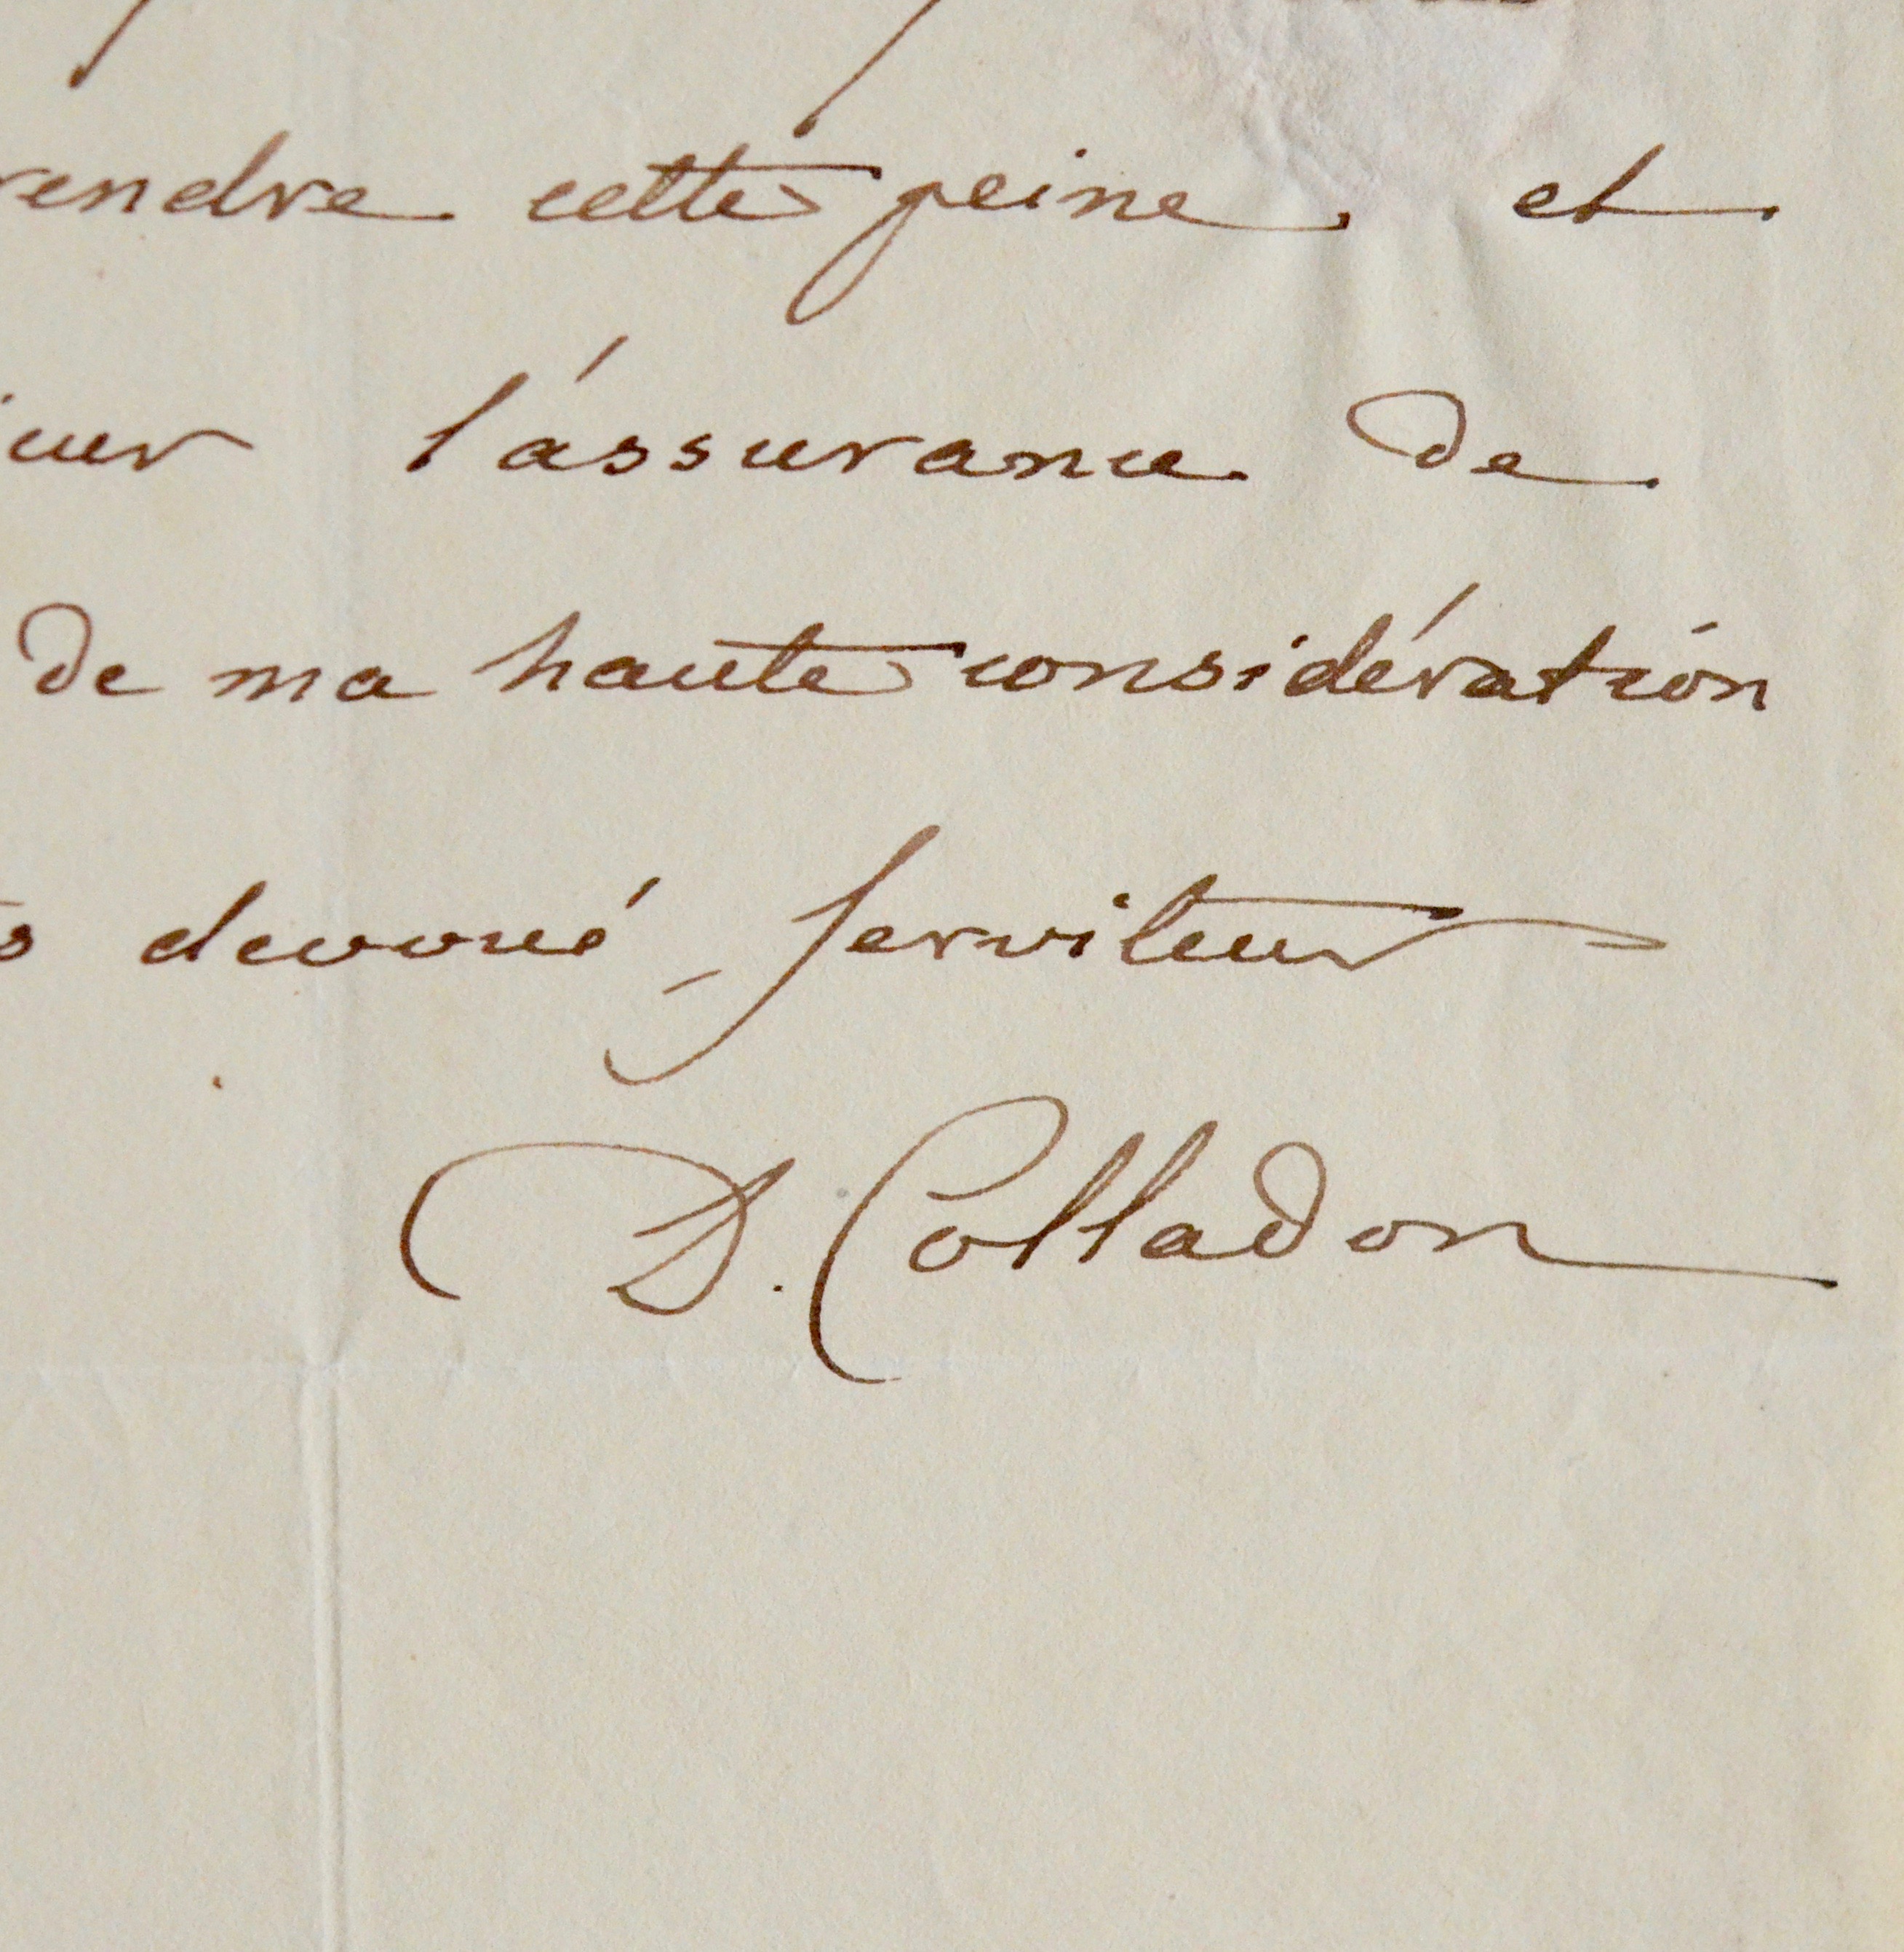 rendre cette peine et
l'assurance de
de ma haute considération
devoué Serviteur
D. Colladon